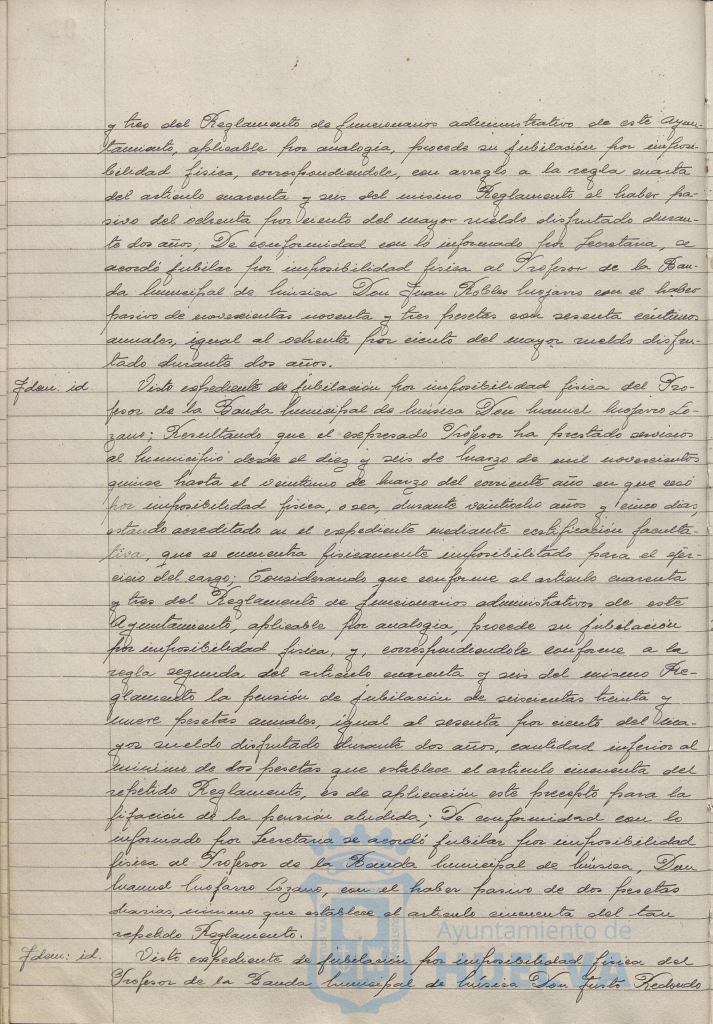 y tres del Reglamento de funcionarios administrativo de este Ayun-
tamiento, aplicable por analogia, procede su jubilación por imposi-
bilidad fisica, correspondiendole, con arreglo a la regla cuarta
del articulo cuarenta y seis del mismo Reglamento el haber pa-
sivo del ochenta por ciento del mayor sueldo disfrutado duran-
te dos años; De conformidad con lo informado por Secretaria, se
acordó jubilar por imposibilidad fisica al Profesor de la Ban-
da Municipal de Música Don Juan Robles Mojarro con el haber
pasivo de novecientas noventa y tres pesetas con sesenta céntimos
anuales, igual al ochenta por ciento del mayor sueldo disfru-
tado durante dos años.
Idem: id. Visto expediente de jubilación por imposibilidad fisica del Pro-
fesor de la Banda Municipal de Música Don Manuel Mojarro Lo-
zano; Resultando que el expresado Profesor ha prestado servicios
al Municipio desde el diez y seis de Marzo de mil novecientos
quince hasta el veintuno de Marzo del corriente año en que cesó
por imposibilidad fisica, o sea, durante veintiocho años y cinco dias,
estando acreditado en el expediente mediante certificación faculta-
tiva, que se encuentra fisicamente imposibilitado para el ejer-
cicio del cargo; Considerando que conforme al articulo cuarenta
y tres del Reglamento de funcionarios administrativos de este
Ayuntamiento, aplicable por analogia, procede su jubilación
por imposibilidad fisica, y, correspondiendole conforme a la
regla segunda del articulo cuarenta y seis del mismo Re-
glamento la pensión de jubilación de seiscientas treinta y
nueve pesetas anuales, igual al sesenta por ciento del ma-
yor sueldo disfrutado durante dos años, cantidad inferior al
minimo de dos pesetas que establece el articulo cincuenta del
repetido Reglamento, es de aplicación este precepto para la
fijación de la pensión aludida; De conformidad con lo
informado por Secretaria se acordó jubilar por imposibilidad
fisica al Profesor de la Banda Municipal de Música, Don
Manuel Mojarro Lozano, con el haber pasivo de dos pesetas
diarias, minimo que establece el articulo cincuenta del tan
repetido Reglamento.
Idem: id. Visto expediente de jubilación por imposibilidad fisica del
Profesor de la Banda Municipal de Música Don Justo Redondo
Ayuntamiento de
HUELVA